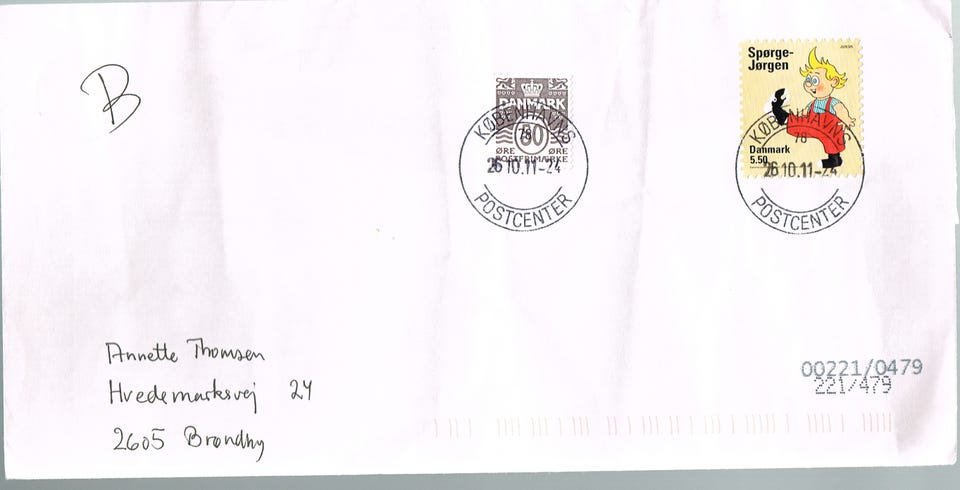 B
DANMARK
80
ØRE ØRE
POSTFRIMÆRKE
KØBENHAVNS
78
26 10.11-24
POSTCENTER
Spørge-
Jørgen
Danmark
5.50
KØBENHAVNS
78
26 10.11-24
POSTCENTER
Annette Thomsen
Hvedemarksvej 24
2605 Brøndby
00221/0479
221/479